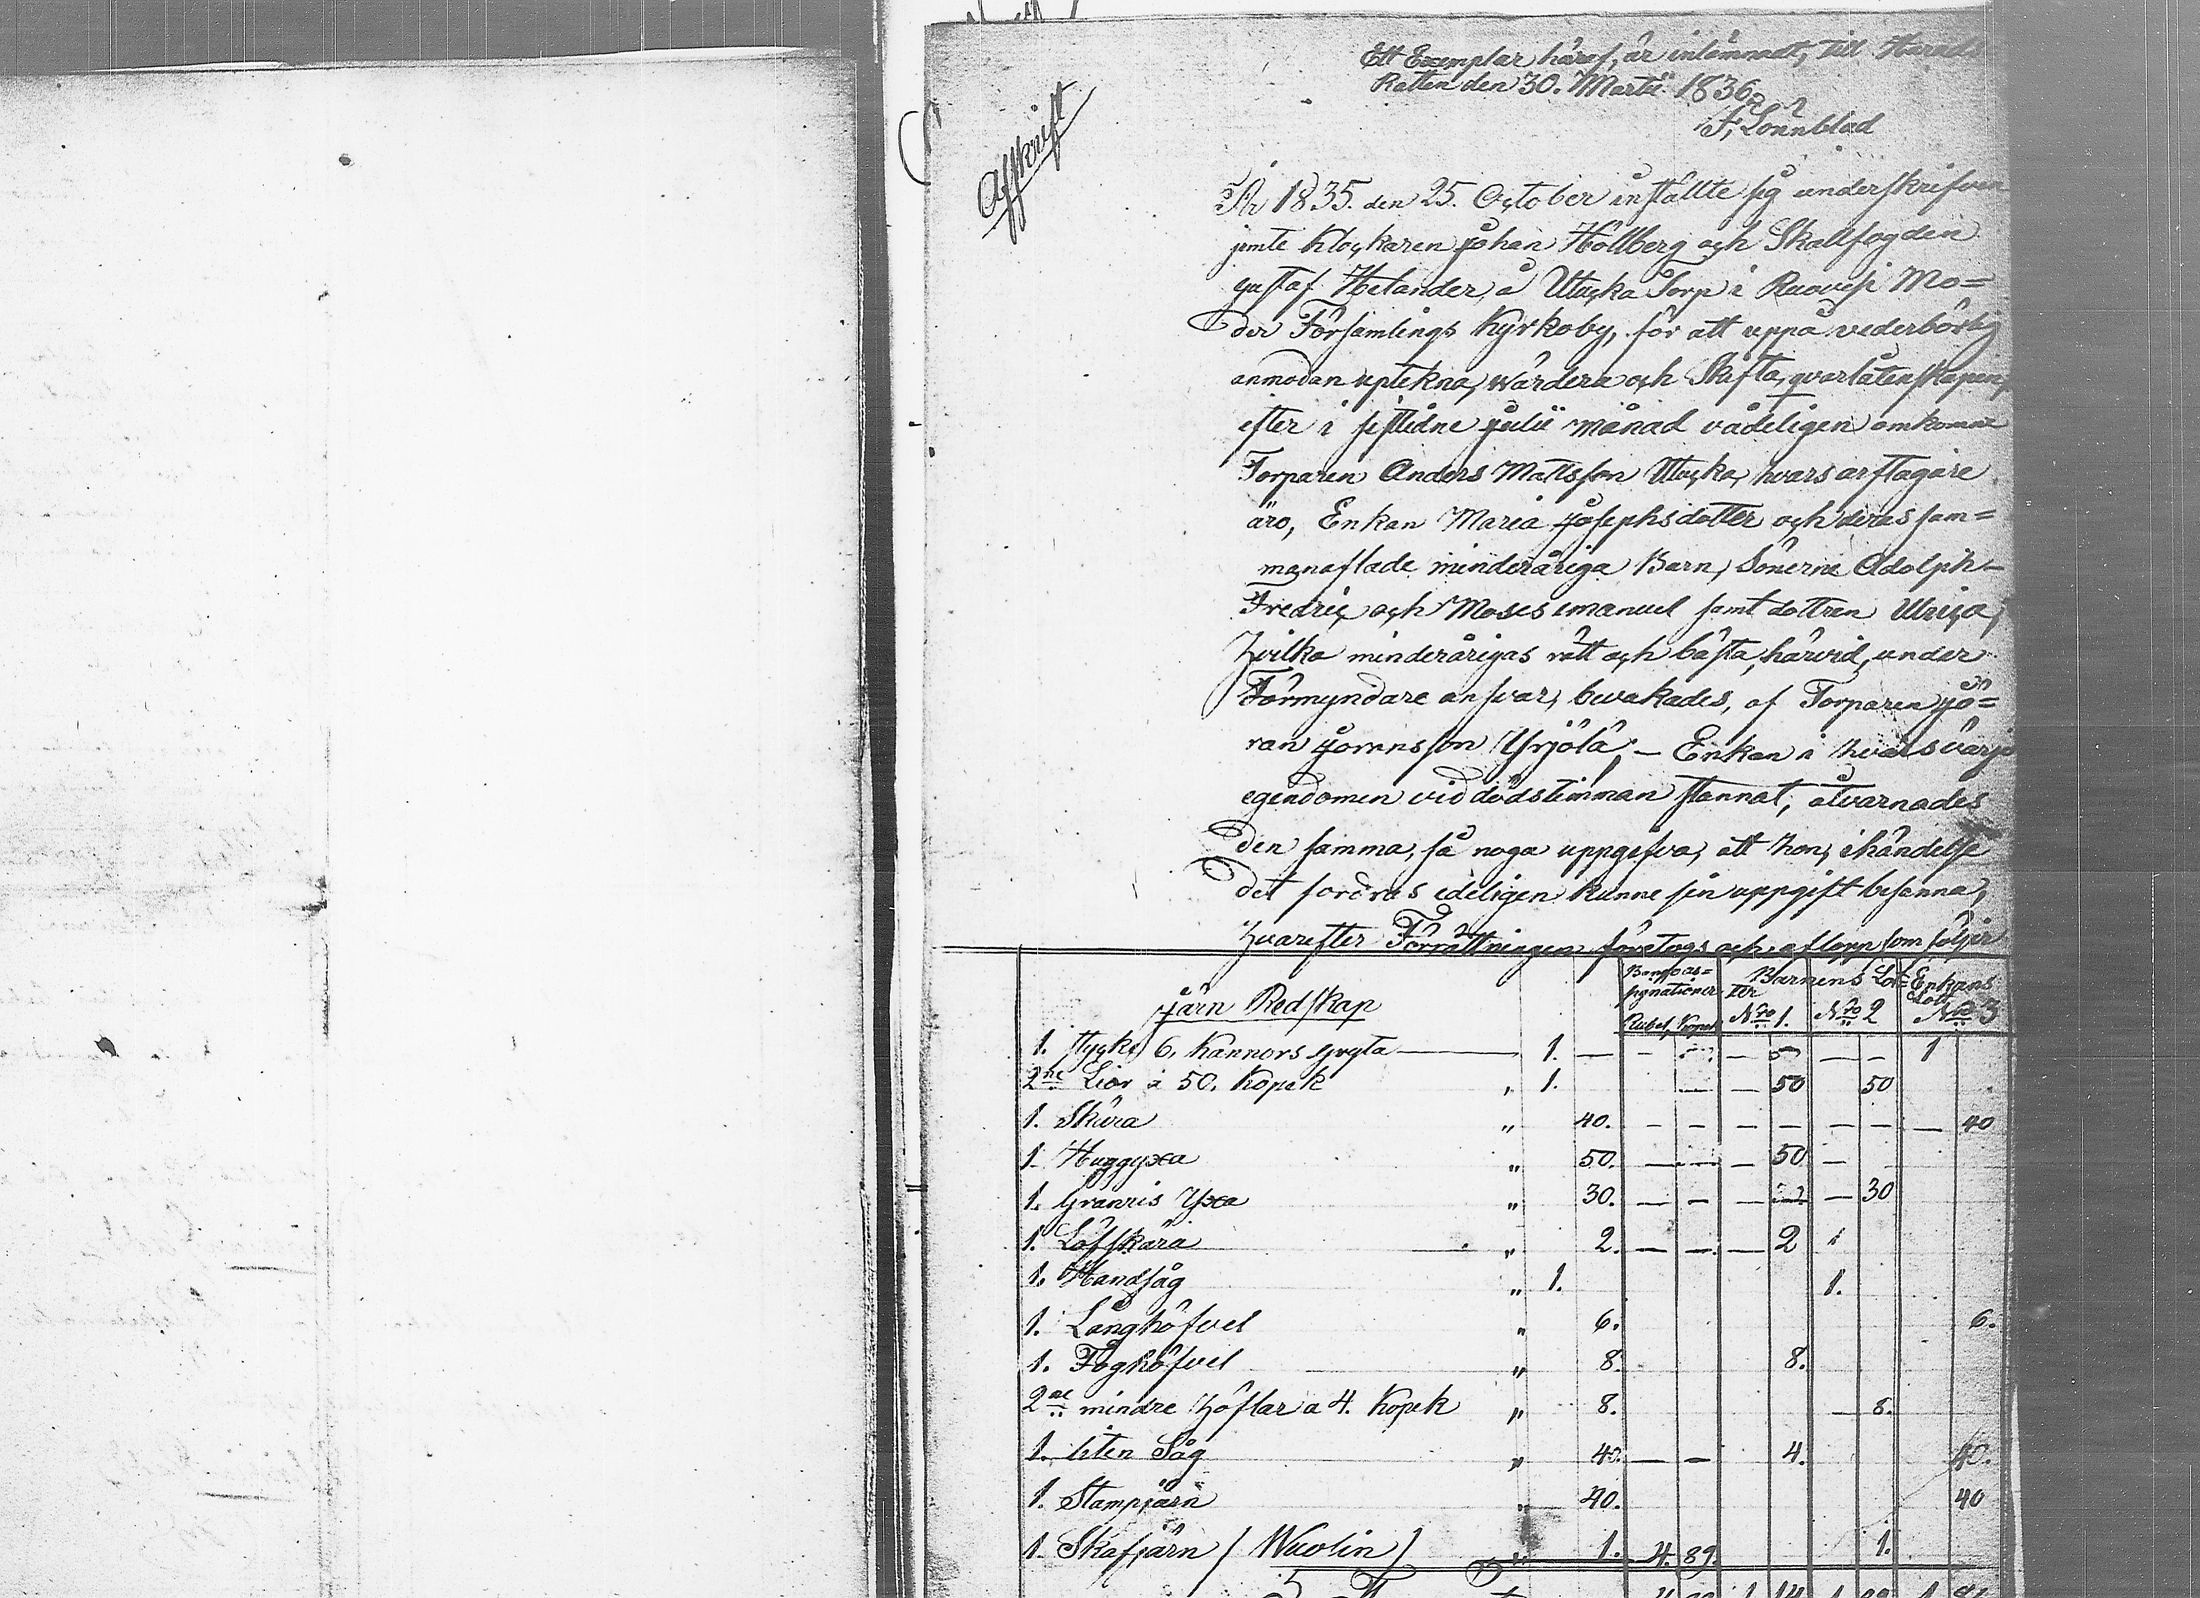 Ett Exemplar häraf, är inlemnadt, till Härads
Rätten den 30. Martii 1836.
F, Lönnblad
Afskrift
År 1835. den 25. October instälte sig underskrifven
jemte Klockaren Johan Hällberg och Skallfogden
Gustaf Helander, å Utucka Torp i Ruovesi Mo=
der Församlings Kyrkoby, för att uppå vederbörlig
anmodan uptekna, wärdera och Skifta, qvarlåtenskapen,
efter i sistledne Julii månad vådeligen omkomne
Torparen Anders Matsson Utucka, hvars arftagare
äro, Enkan Maria Josephsdotter och deras sam=
manaflade minderåriga Barn, Sönerne Adolph-
Fredric, och Moses Emanuel samt dottren Ulrica,
hvilka minderårigas rätt och bästa, härvid, under
Förmyndare ansvar, bevakades, af Torparen Jö=
ran Göransson Yrjölä; - Enkan i hvars värjo
egendomen vid dödstimman stannat, åtvarnades
den samma, så noga uppgifva, att hon, i händelse
det fordras edeligen kunne sin uppgift besanna,
hvarefter Förrättningen företogs och aflopp som följer
Banco as=
signationer
Rubel, Kopek
Barnens Lot=
ter
Nro 1. Nro 2
Enkans
Lott
Nro 3
Järn Redskap
1. stycke 6. Kannors Gryta 1. — — — — — 1
2ne Liar à 50. Kopek " 1. — — 50 50
1. Skära " 40. — — — — — — — 40
1. Huggyxa " 50. — — — 50 —
1. Granris Yxa " 30. — — — — — 30
1. Löfskära " 2. — — — 2
1. Handsåg " 1. 1.
1. Långhöfvel " 6. 6.
1. Foghöfvel " 8. 8.
2ne mindre höflar a 4. Kopek " 8. — 8.
1. liten Såg " — — 4.
1. Stampjärn " 40. 40
1. Skafjärn / Wuolin / " 1. 4. 89. 1.